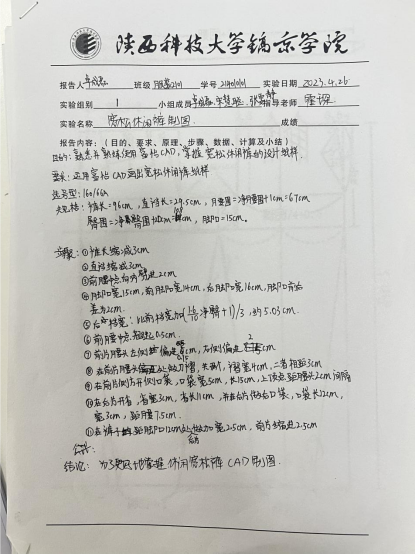 陕西科技大学镐京学院
报告人 班级 服装2101 学号 实验日期 2023.4.26
实验组别 1 小组成员 指导老师
实验名称 宽松休闲裤制图 成绩
报告内容:(目的、要求、原理、步骤、数据、计算及小结)
目的:熟悉并熟练使用富怡CAD,掌握宽松休闲裤的设计放样.
要求:运用富怡CAD画出宽松休闲裤纸样
选号型:160/66A
规格:裤长=96cm,直裆长=29.5cm,腰围=净腰围+1cm=67cm
臀围=净臀围+ cm,脚口=15cm。
步骤:①裤长缩减3cm
②直裆缩减3cm
③前腰中点向 进2cm
④脚口宽15cm,前脚口宽14cm,后脚口宽16cm,脚口前后
差为2cm.
⑤后 裆宽:比前裆宽加 净臀+1)/3,约5.03cm.
⑥前腰中点 0.5cm.
⑦前片腰头左侧 偏进 cm,右侧偏进 cm
⑧在前片腰头 处做刀褶,共两个,褶宽4cm,二者相距3cm
⑨在前片侧方开 袋,口袋宽5cm,长15cm,上顶点距腰头2cm
⑩在后片开省,省宽3cm,省长11cm,并在后片做后口袋,口袋长12cm,
宽3cm,距腰7.5cm.
⑪在裤 距脚口12cm处 加宽2.5cm,前片缩进2.5cm
结论: 地掌握休闲宽松裤CAD制图.